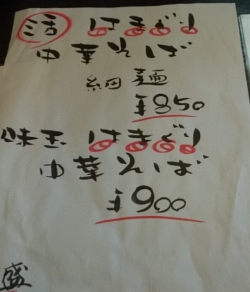 活 はまぐり
中華そば
細麺
¥850
味玉 はまぐり
中華そば
¥900
盛